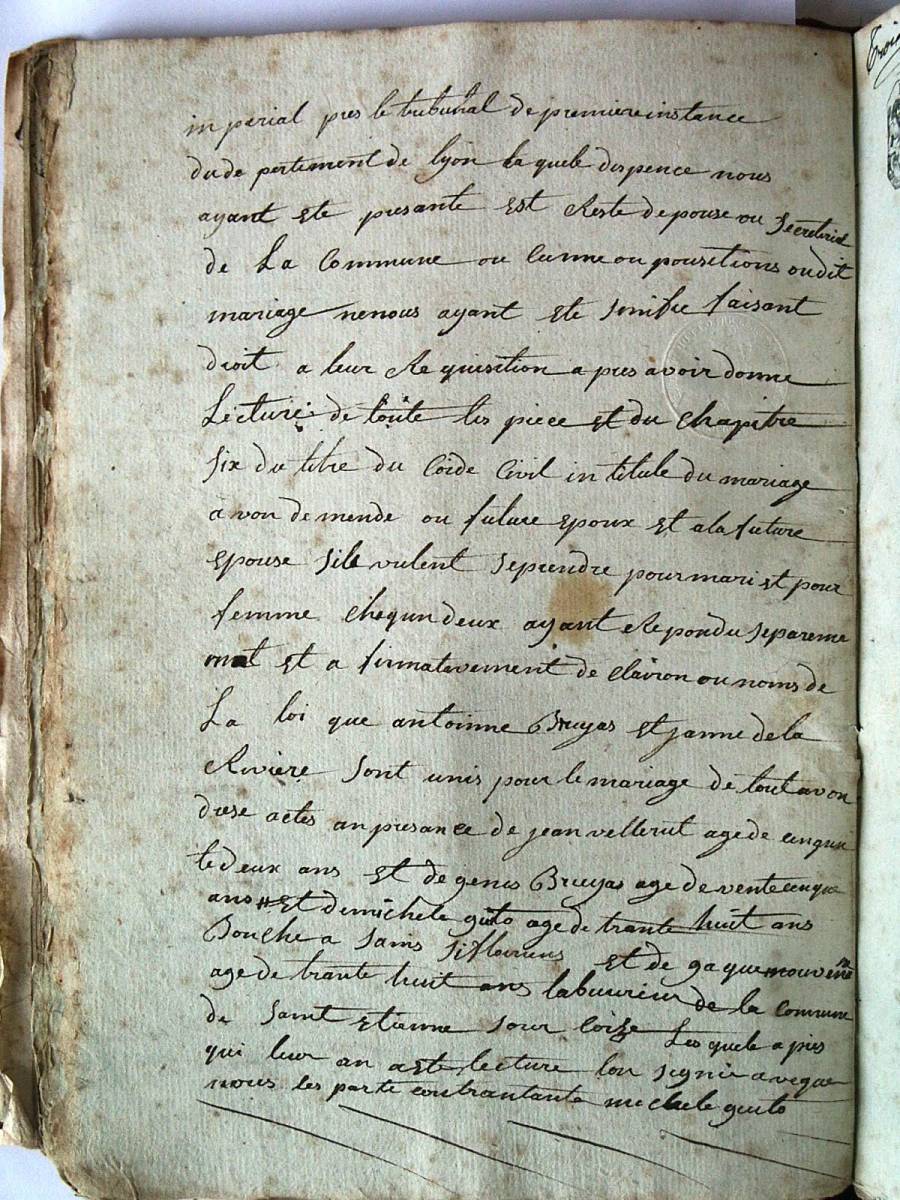 in perial pres le tribunal de premiere instance
du de pertement de lyon la quele dispence nous
ayant ete presante est Reste depouse ou Secreteriat
de La Commune ou cunne ou pousitions ou dit
mariage ne nous ayant ete Jenifie faisant
droit a leur Re quisition a pres avoir donne
Lecture de toute les piece et du Chapitre
Six du titre du Coide Civil in titule du mariage
a von de mende ou future epoux et a la future
epouse Sile vulent Seprendre pour mari et pour
femme chequn deux ayant Repondu Separeme
mat et a firmativement de clairon ou noms de
La loi que antoinne Bruyas et janne de la
Riviere Sont unis pour le mariage de tout avon
drese actes an presance de jean vellerut age de cinqun
te deux ans et de genis Bruyas age de vente cinque
ans et de michele guito age de trante huit ans
Bouche a Sains Siflouriens et de gaque mouvene
age de trante huit ans laboureur de la commune
de Saint etienne Sour Coize Les quele a pres
qui leur an a ete lecture lon Signie aveque
nous les parte contrantante michele guito
Troi